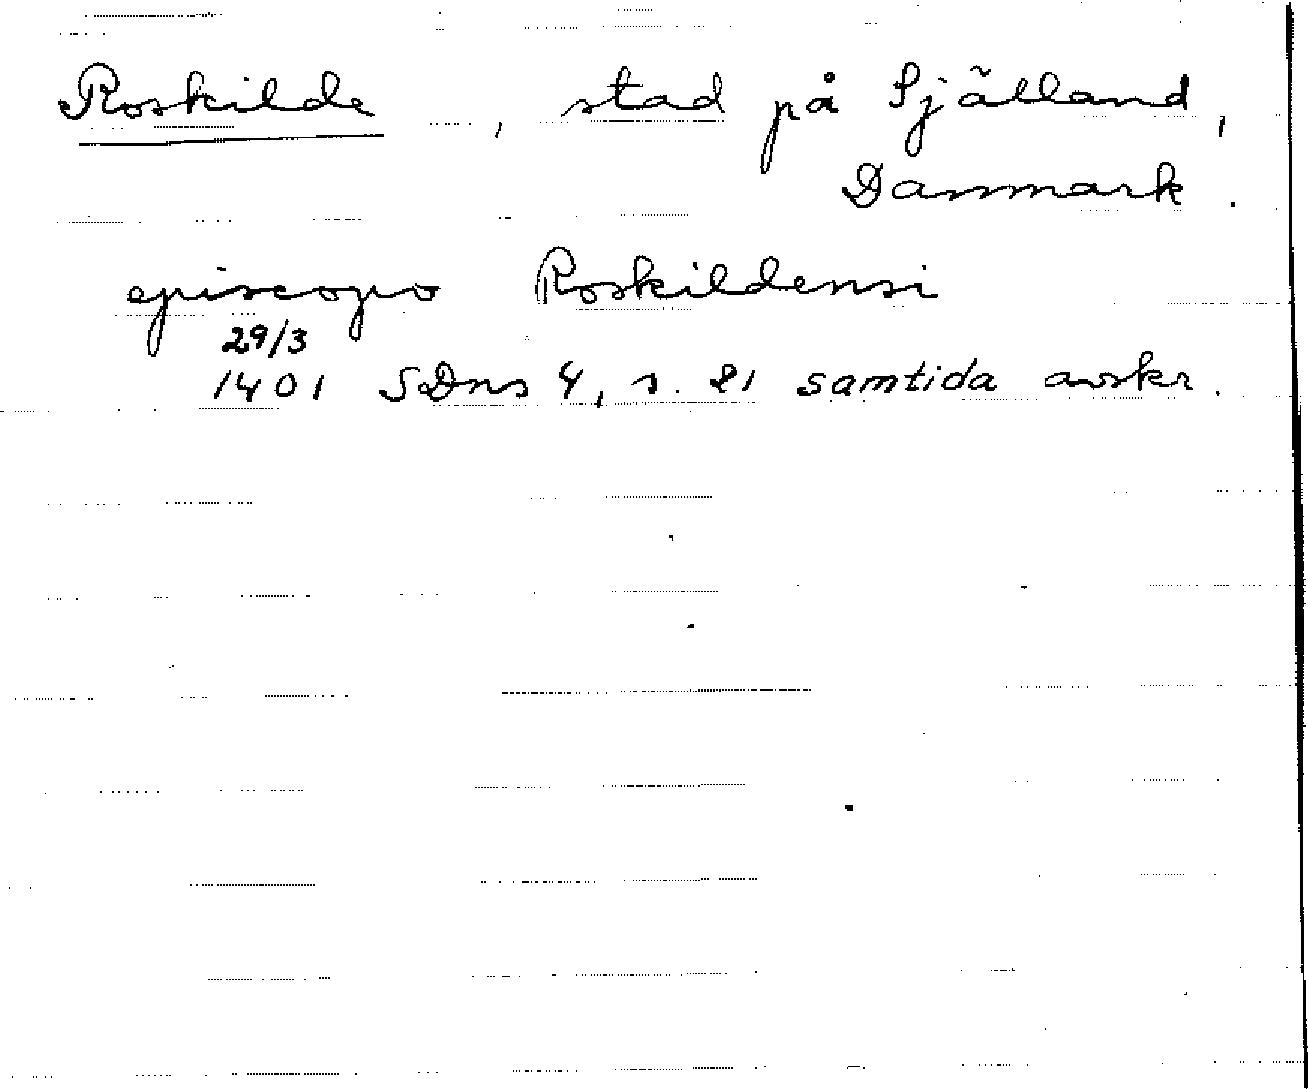 Roskilde, stad på Själland,
Danmark.
episcopo Roskildensi
29/3
1401 SDns 4, s. 21 samtida avskr.